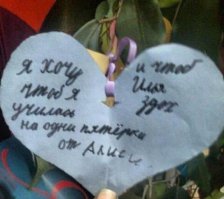 Я хочу
чтоб я
училась
на одни пятёрки
от Алисы
и чтоб
Илья
здох